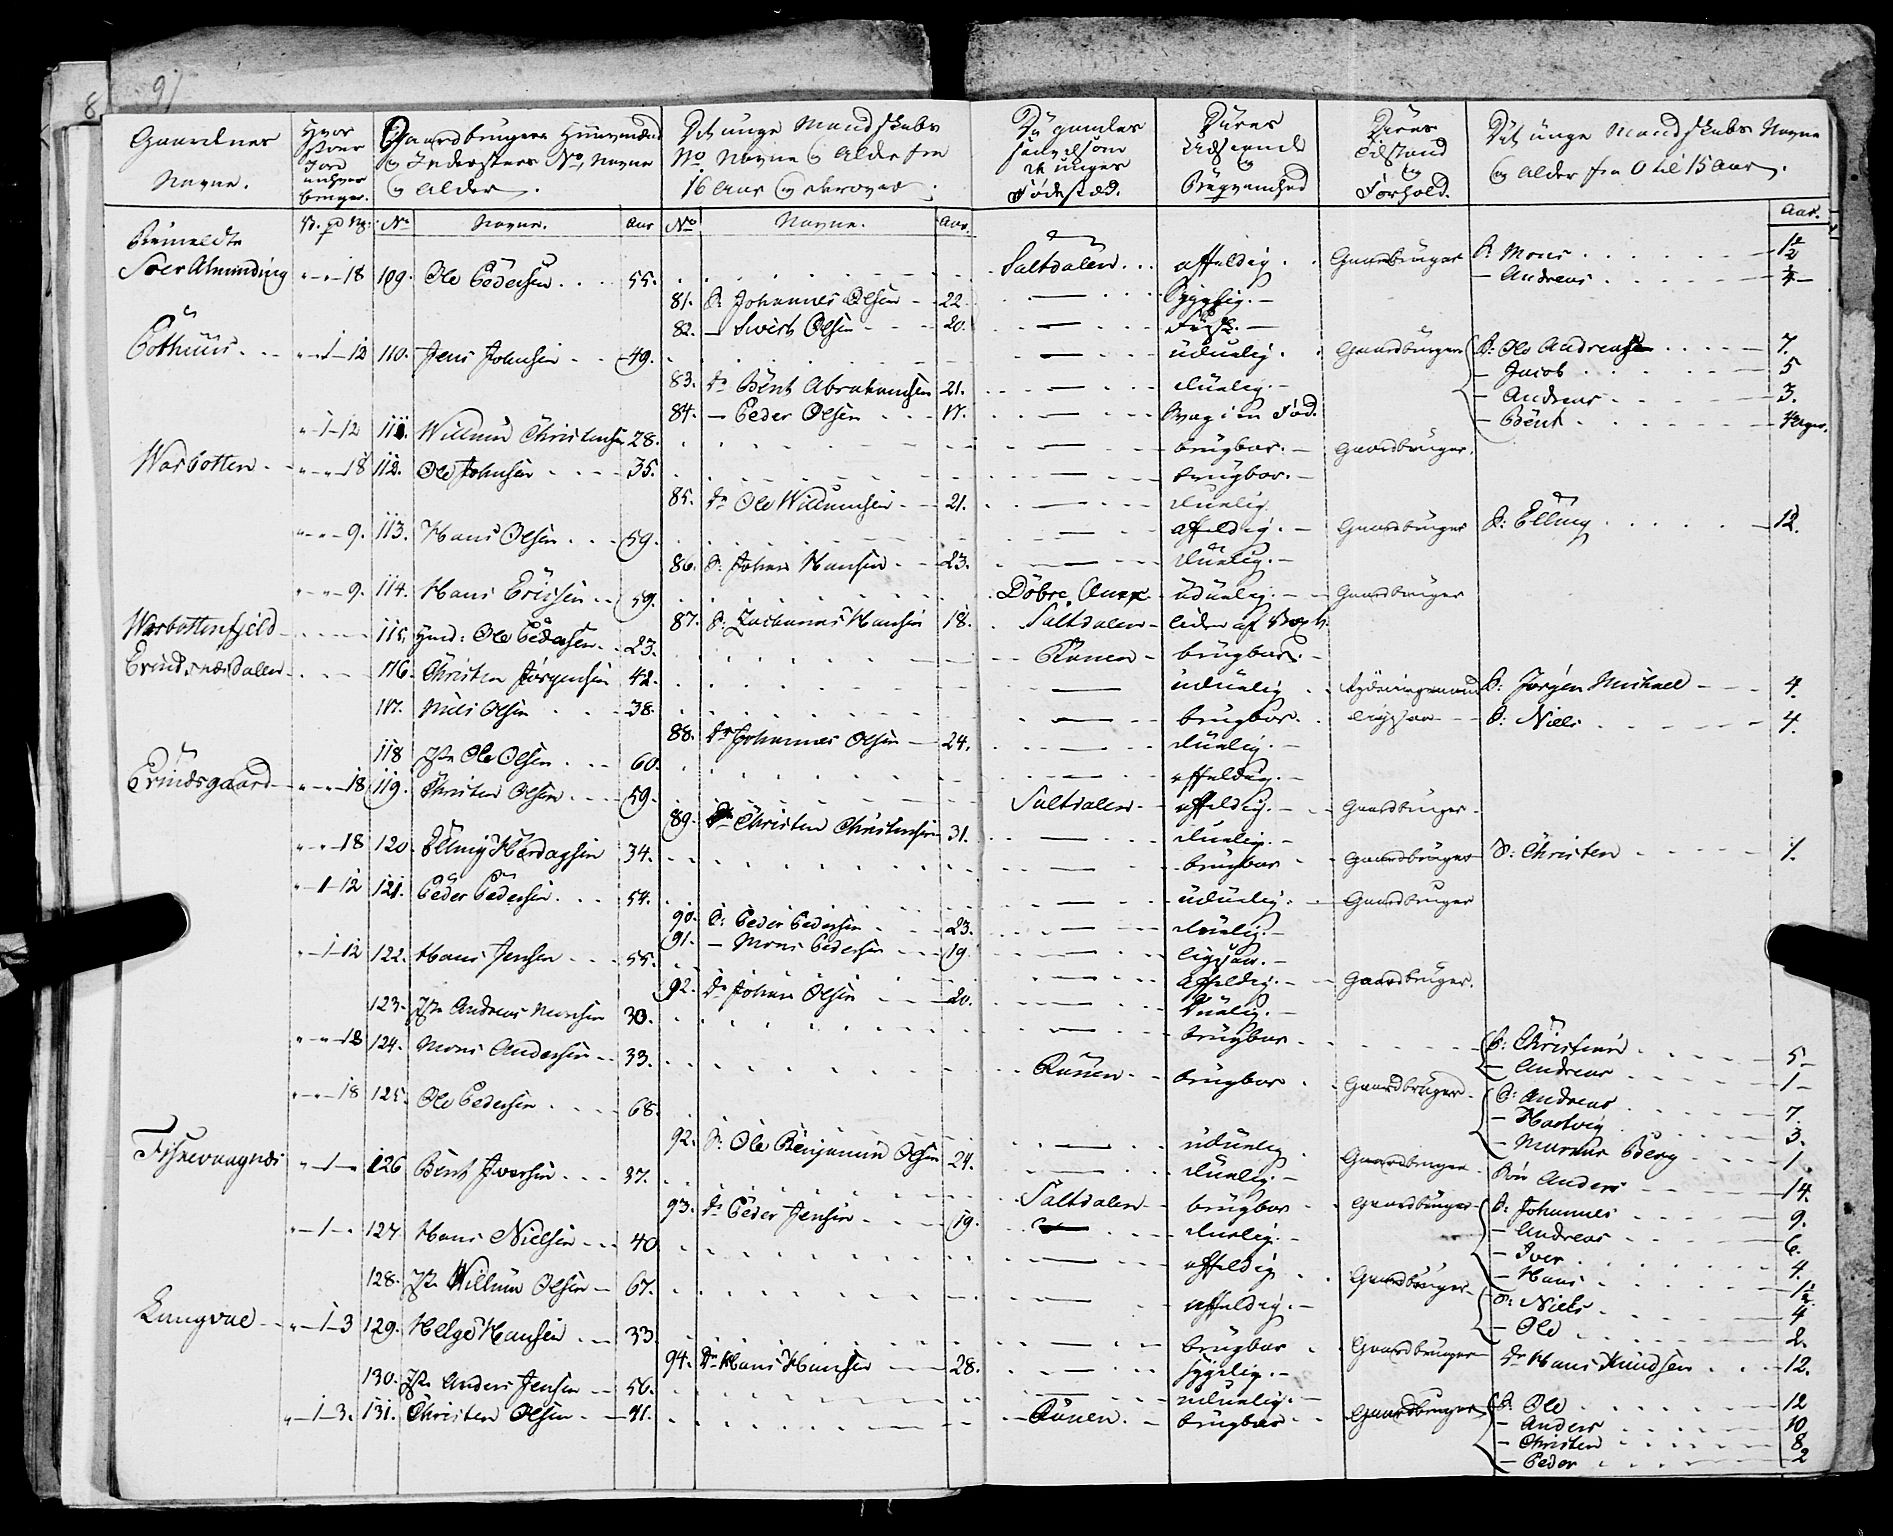 8 91
Gaardenes Navne.
Hvor Stoer Jord enhver bruger.
Gaardbrugere Huusmænd og Indersters No, Navne og Alder.
Det unge Mandskabs No Navne og Alder fra 16 Aar og derover.
De gamles saavelsom de unges Fødested.
Deres Udseende og Beqvemhed
Deres Tilstand og Forhold.
Det unge Mandskabs Navne og Alder fra 0 til 15 Aar.
No Navne. Aar No Navne. Aar. Aar.
Bemeldte
Soer Almending „-„-18 109. Ole Pedersen 55. Saltdalen affældig. Gaardbruger S. Mons 1½
81. S. Johannes Olsen 22. Sygelig. — Andreas ¼
82. — Sivert Olsen 20. Frisk.
Pothuus „-1-12 110. Jens Johnsen 49. uduelig. Gaardbruger S: Ole Andreas 7.
83. Dr Bent Abrahamsen 21. duelig. — Jacob 5
84. — Peder Olsen 17. Svag i en Fod. — Andreas 3.
— Bent
„-1-12 111. Willum Christensen 28. brugbar. Gaardbruger.
Warbotten „-„-18 112. Ole Johnsen 35. brugbar.
85. Dr Ole Willumsen 21. duelig
„-„-9. 113. Hans Olsen 59. affældig. Gaardbruger S: Elling 12.
86. S. Johan Hansen 23. duelig.
„-„-9. 114. Hans Ericsen 59. Dobre Anex uduelig. Gaardbruger
87. S. Zacharias Hansen 18. Saltdalen lider af
Warbottenfjeld 115. Huusd: Ole Pedersen 23. Ranen brugbar.
Evindsnæsdallen 116. Christen Jørgensen 42. uduelig Rydningsmand S: Jørgen Michael 4.
117. Niels Olsen 38. brugbar. ligesaa S: Niels 4.
88. Dr Johannes Olsen 24. duelig.
118 Ole Olsen 60. affældig.
Evindsgaard „-„-18 119. Christen Olsen 59. Saltdalen affældig. Gaardbruger.
89. Christen Christensen 31. duelig.
„-„-18 120. Elling Hardagsen 34. brugbar Gaardbruger S: Christen 1.
„-1-12 121. Peder Pedersen 54. uduelig. Gaardbruger
90. S: Peder Pedersen 23. duelig.
91. — Mons Pedersen 19. ligesaa.
„-1-12 122. Hans Jensen 55. affældig. Gaardbruger.
92. Dr Johan Olsen 20. duelig.
123. Andreas Monsen 30. brugbar
„-„-18 124. Mons Andersen 33. Ranen brugbar Gaardbruger S: Christian 5
— Andreas 1
„-„-18 125. Ole Pedersen 68. uduelig Gaardbruger S: Andreas 7.
92. S. Ole Benjamin Olsen 24. duelig. — Hartvig 3.
— Markus Berg 1.
Fiskevaagnæs „-1-„ 126 Bent Iversen 37. Saltdalen brugbar Gaardbruger Søn Anders 14.
93. Dr Peder Jensen 19. duelig. S. Johannes 9.
„-1-„ 127. Hans Nielsen 40 — Andreas 6.
— Iver 4.
— Hans 1½
128. Willum Olsen 67. affældig.
Langvae „-1-3 129. Helge Hansen 33. brugbar Gaardbruger S: Niels 4
94. Dr Hans Hansen 28. sygelig. — Ole 2.
Dr Hans Knudsen 12.
130. Anders Jensen 56. uduelig.
„-1-3. 131. Christen Olsen 41. Ranen. brugbar Gaardbruger S. Ole 12
— Anders 10
— Christen 8
— Peder 2